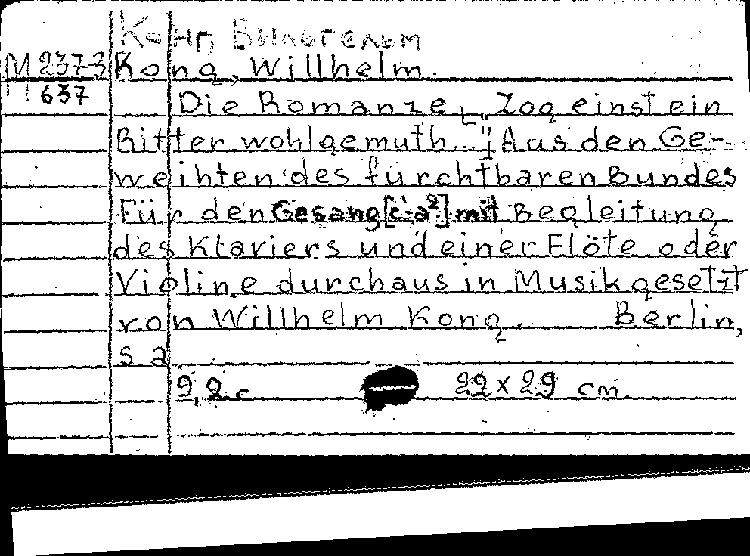 Конг Вильгельм
M 237-3 Kong, Willhelm.
M 637
Die Romanze „Zog einst ein
Ritter wohlgemuth..." Aus den Ge-
weihten des furchtbaren Bundes
Für den Gesang [c¹-a²] mit Begleitung
des Klaviers und einer Flöte oder
Violine durchaus in Musik gesetzt
von Willhelm Kong. Berlin,
s a
9,2 c 22 x 29 cm.